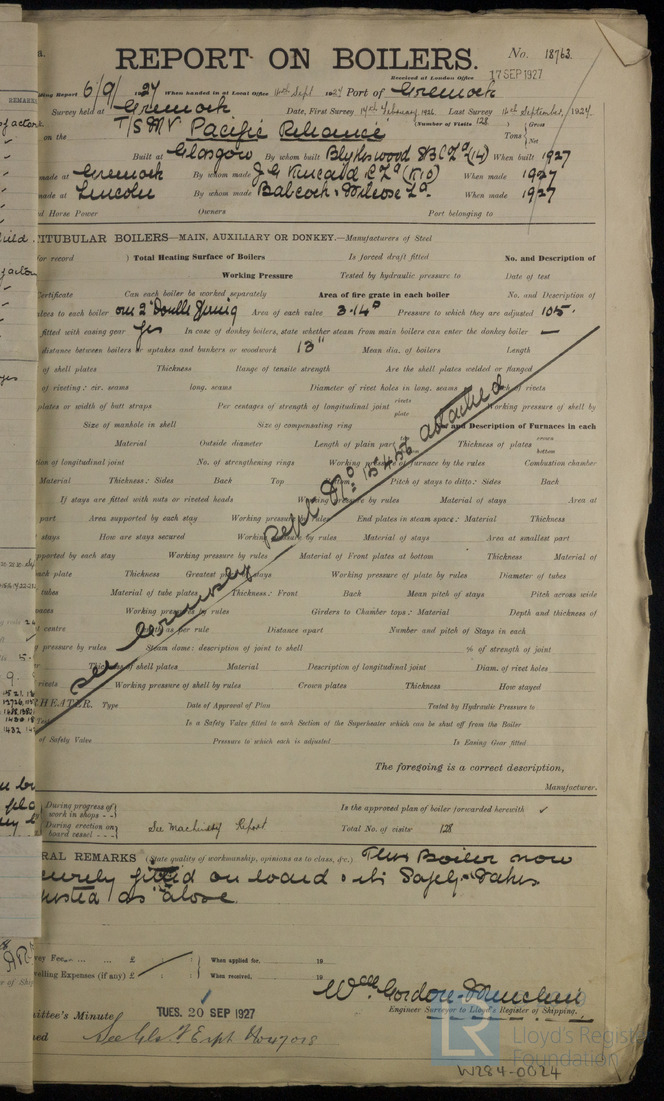 REPORT ON BOILERS.
No. 18763
Received at London Office 17 SEP 1927
ting Report 6/9/1927 When handed in at Local Office 16th Sept 1927 Port of Greenock
Survey held at Greenock Date, First Survey 14th February 1926 Last Survey 16th September, 1927
(Number of Visits 128)
on the T/SMV Pacific Reliance Tons Gross Net
Built at Glasgow By whom built Blythswood SB Co Ld (14) When built 1927
made at Greenock By whom made J G Kincaid & Co Ld (K10) When made 1927
made at Lincoln By whom made Babcock & Wilcox Ld When made 1927
d Horse Power Owners Port belonging to
ITUBULAR BOILERS—MAIN, AUXILIARY OR DONKEY.—Manufacturers of Steel
for record ) Total Heating Surface of Boilers Is forced draft fitted No. and Description of
Working Pressure Tested by hydraulic pressure to Date of test
Certificate Can each boiler be worked separately Area of fire grate in each boiler No. and Description of
valves to each boiler one 2" Double Spring Area of each valve 3.14" Pressure to which they are adjusted 105
fitted with easing gear yes In case of donkey boilers, state whether steam from main boilers can enter the donkey boiler —
distance between boilers or uptakes and bunkers or woodwork 13" Mean dia. of boilers Length
of shell plates Thickness Range of tensile strength Are the shell plates welded or flanged
of riveting: cir. seams long. seams Diameter of rivet holes in long. seams Pitch of rivets
plates or width of butt straps Per centages of strength of longitudinal joint rivets plate Working pressure of shell by
Size of manhole in shell Size of compensating ring No. and Description of Furnaces in each
Material Outside diameter Length of plain part Thickness of plates crown bottom
tion of longitudinal joint No. of strengthening rings Working pressure of furnace by the rules Combustion chamber
Material Thickness: Sides Back Top Pitch of stays to ditto: Sides Back
If stays are fitted with nuts or riveted heads Working pressure by rules Material of stays Area at
part Area supported by each stay Working pressure by rules End plates in steam space: Material Thickness
stays How are stays secured Working pressure by rules Material of stays Area at smallest part
pported by each stay Working pressure by rules Material of Front plates at bottom Thickness Material of
ack plate Thickness Greatest pitch of stays Working pressure of plate by rules Diameter of tubes
tubes Material of tube plates Thickness: Front Back Mean pitch of stays Pitch across wide
paces Working pressure by rules Girders to Chamber tops: Material Depth and thickness of
t centre Length as per rule Distance apart Number and pitch of Stays in each
g pressure by rules Steam dome: description of joint to shell % of strength of joint
Thickness of shell plates Material Description of longitudinal joint Diam. of rivet holes
rivets Working pressure of shell by rules Crown plates Thickness How stayed
See Grimsby Rept No. 15456 attached
HEATER. Type Date of Approval of Plan Tested by Hydraulic Pressure to
Test Is a Safety Valve fitted to each Section of the Superheater which can be shut off from the Boiler
of Safety Valve Pressure to which each is adjusted Is Easing Gear fitted
The foregoing is a correct description,
Manufacturer.
During progress of work in shops Is the approved plan of boiler forwarded herewith ✓
During erection on board vessel See Machinery Report Total No. of visits 128
RAL REMARKS (State quality of workmanship, opinions as to class, &c.) This Boiler now
curely fitted on board & its Safety Valves
justed as above
vey Fee £ When applied for, 19
velling Expenses (if any) £ When received, 19
Wm Gordon-Murchie
Engineer Surveyor to Lloyd's Register of Shipping.
mittee's Minute TUES. 20 SEP 1927
ned
LR Lloyd's Register Foundation
W284-0024